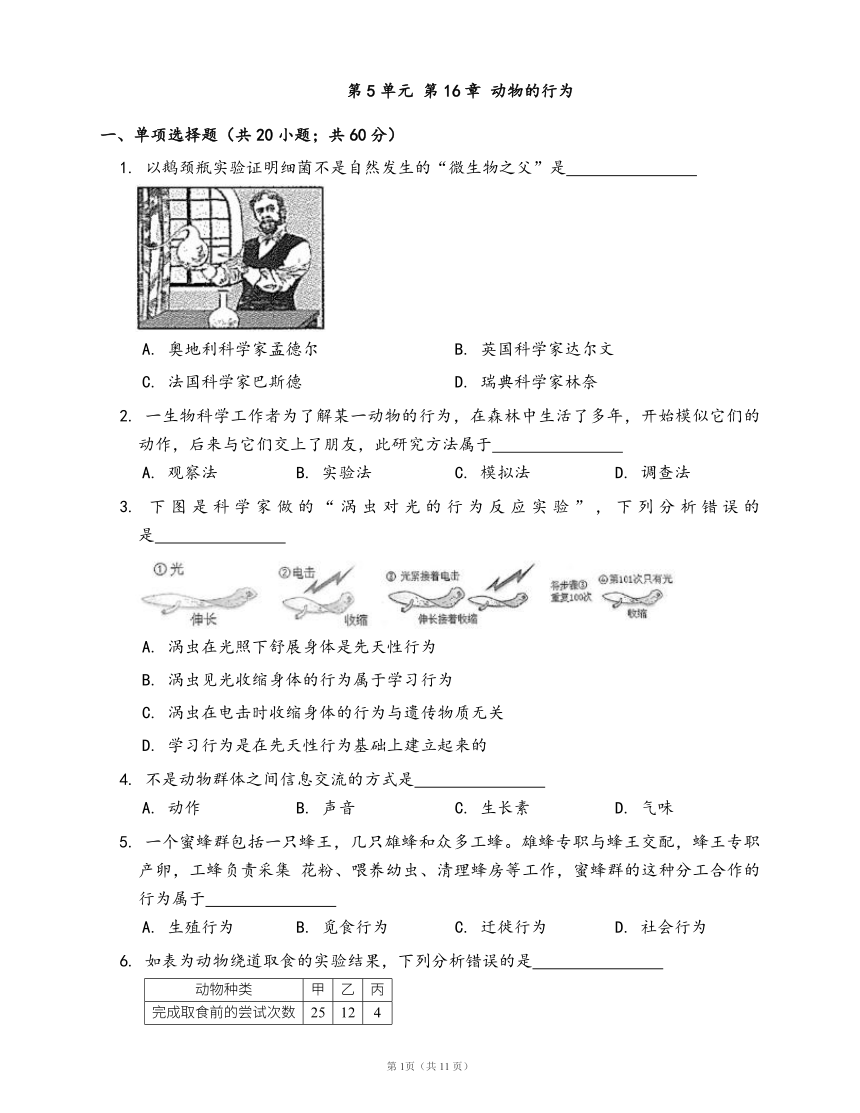 第5单元 第16章 动物的行为
一、单项选择题（共20小题；共60分）
1. 以鹅颈瓶实验证明细菌不是自然发生的“微生物之父”是
A. 奥地利科学家孟德尔 B. 英国科学家达尔文
C. 法国科学家巴斯德 D. 瑞典科学家林奈
2. 一生物科学工作者为了解某一动物的行为，在森林中生活了多年，开始模似它们的
动作，后来与它们交上了朋友，此研究方法属于
A. 观察法 B. 实验法 C. 模拟法 D. 调查法
3. 下图是科学家做的“涡虫对光的行为反应实验”，下列分析错误的
是
①光 ②电击 ③光紧接着电击 将步骤③ ④第101次只有光
重复100次
伸长 收缩 伸长接着收缩 收缩
A. 涡虫在光照下舒展身体是先天性行为
B. 涡虫见光收缩身体的行为属于学习行为
C. 涡虫在电击时收缩身体的行为与遗传物质无关
D. 学习行为是在先天性行为基础上建立起来的
4. 不是动物群体之间信息交流的方式是
A. 动作 B. 声音 C. 生长素 D. 气味
5. 一个蜜蜂群包括一只蜂王，几只雄蜂和众多工蜂。雄蜂专职与蜂王交配，蜂王专职
产卵，工蜂负责采集 花粉、喂养幼虫、清理蜂房等工作，蜜蜂群的这种分工合作的
行为属于
A. 生殖行为 B. 觅食行为 C. 迁徙行为 D. 社会行为
6. 如表为动物绕道取食的实验结果，下列分析错误的是
动物种类 甲 乙 丙
完成取食前的尝试次数 25 12 4
第1页（共11页）